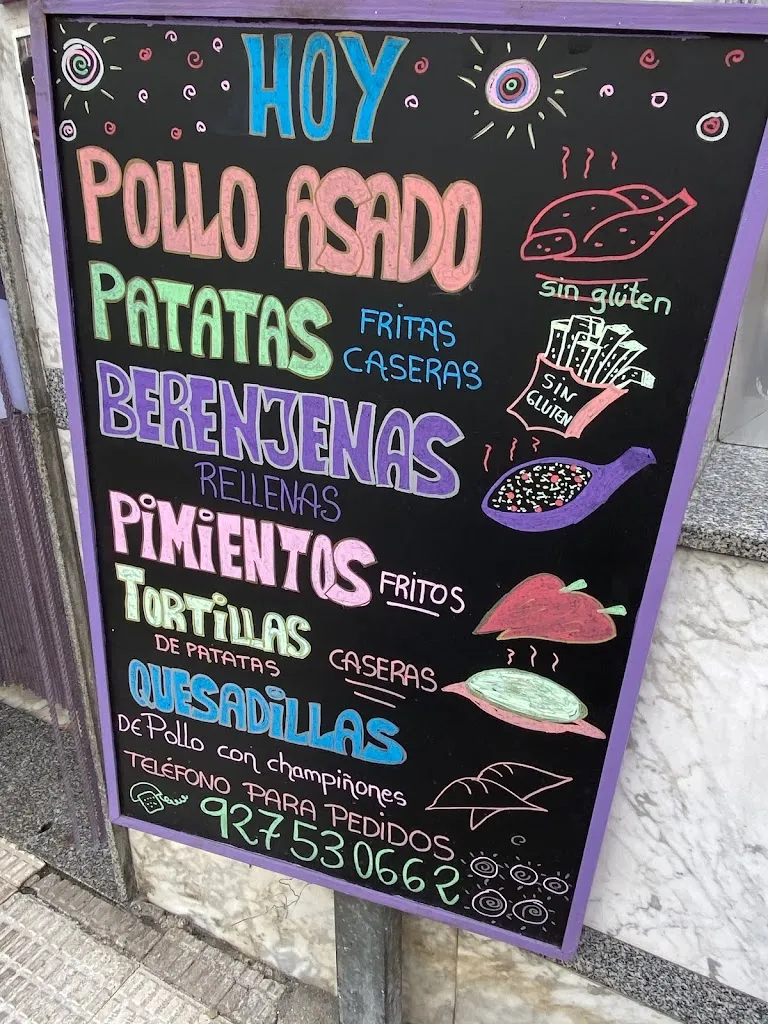 HOY
POLLO ASADO
sin glúten
PATATAS FRITAS CASERAS
SIN GLUTEN
BERENJENAS
RELLENAS
PIMIENTOS FRITOS
TORTILLAS
DE PATATAS CASERAS
QUESADILLAS
DE Pollo con champiñones
TELÉFONO PARA PEDIDOS
927 53 0662